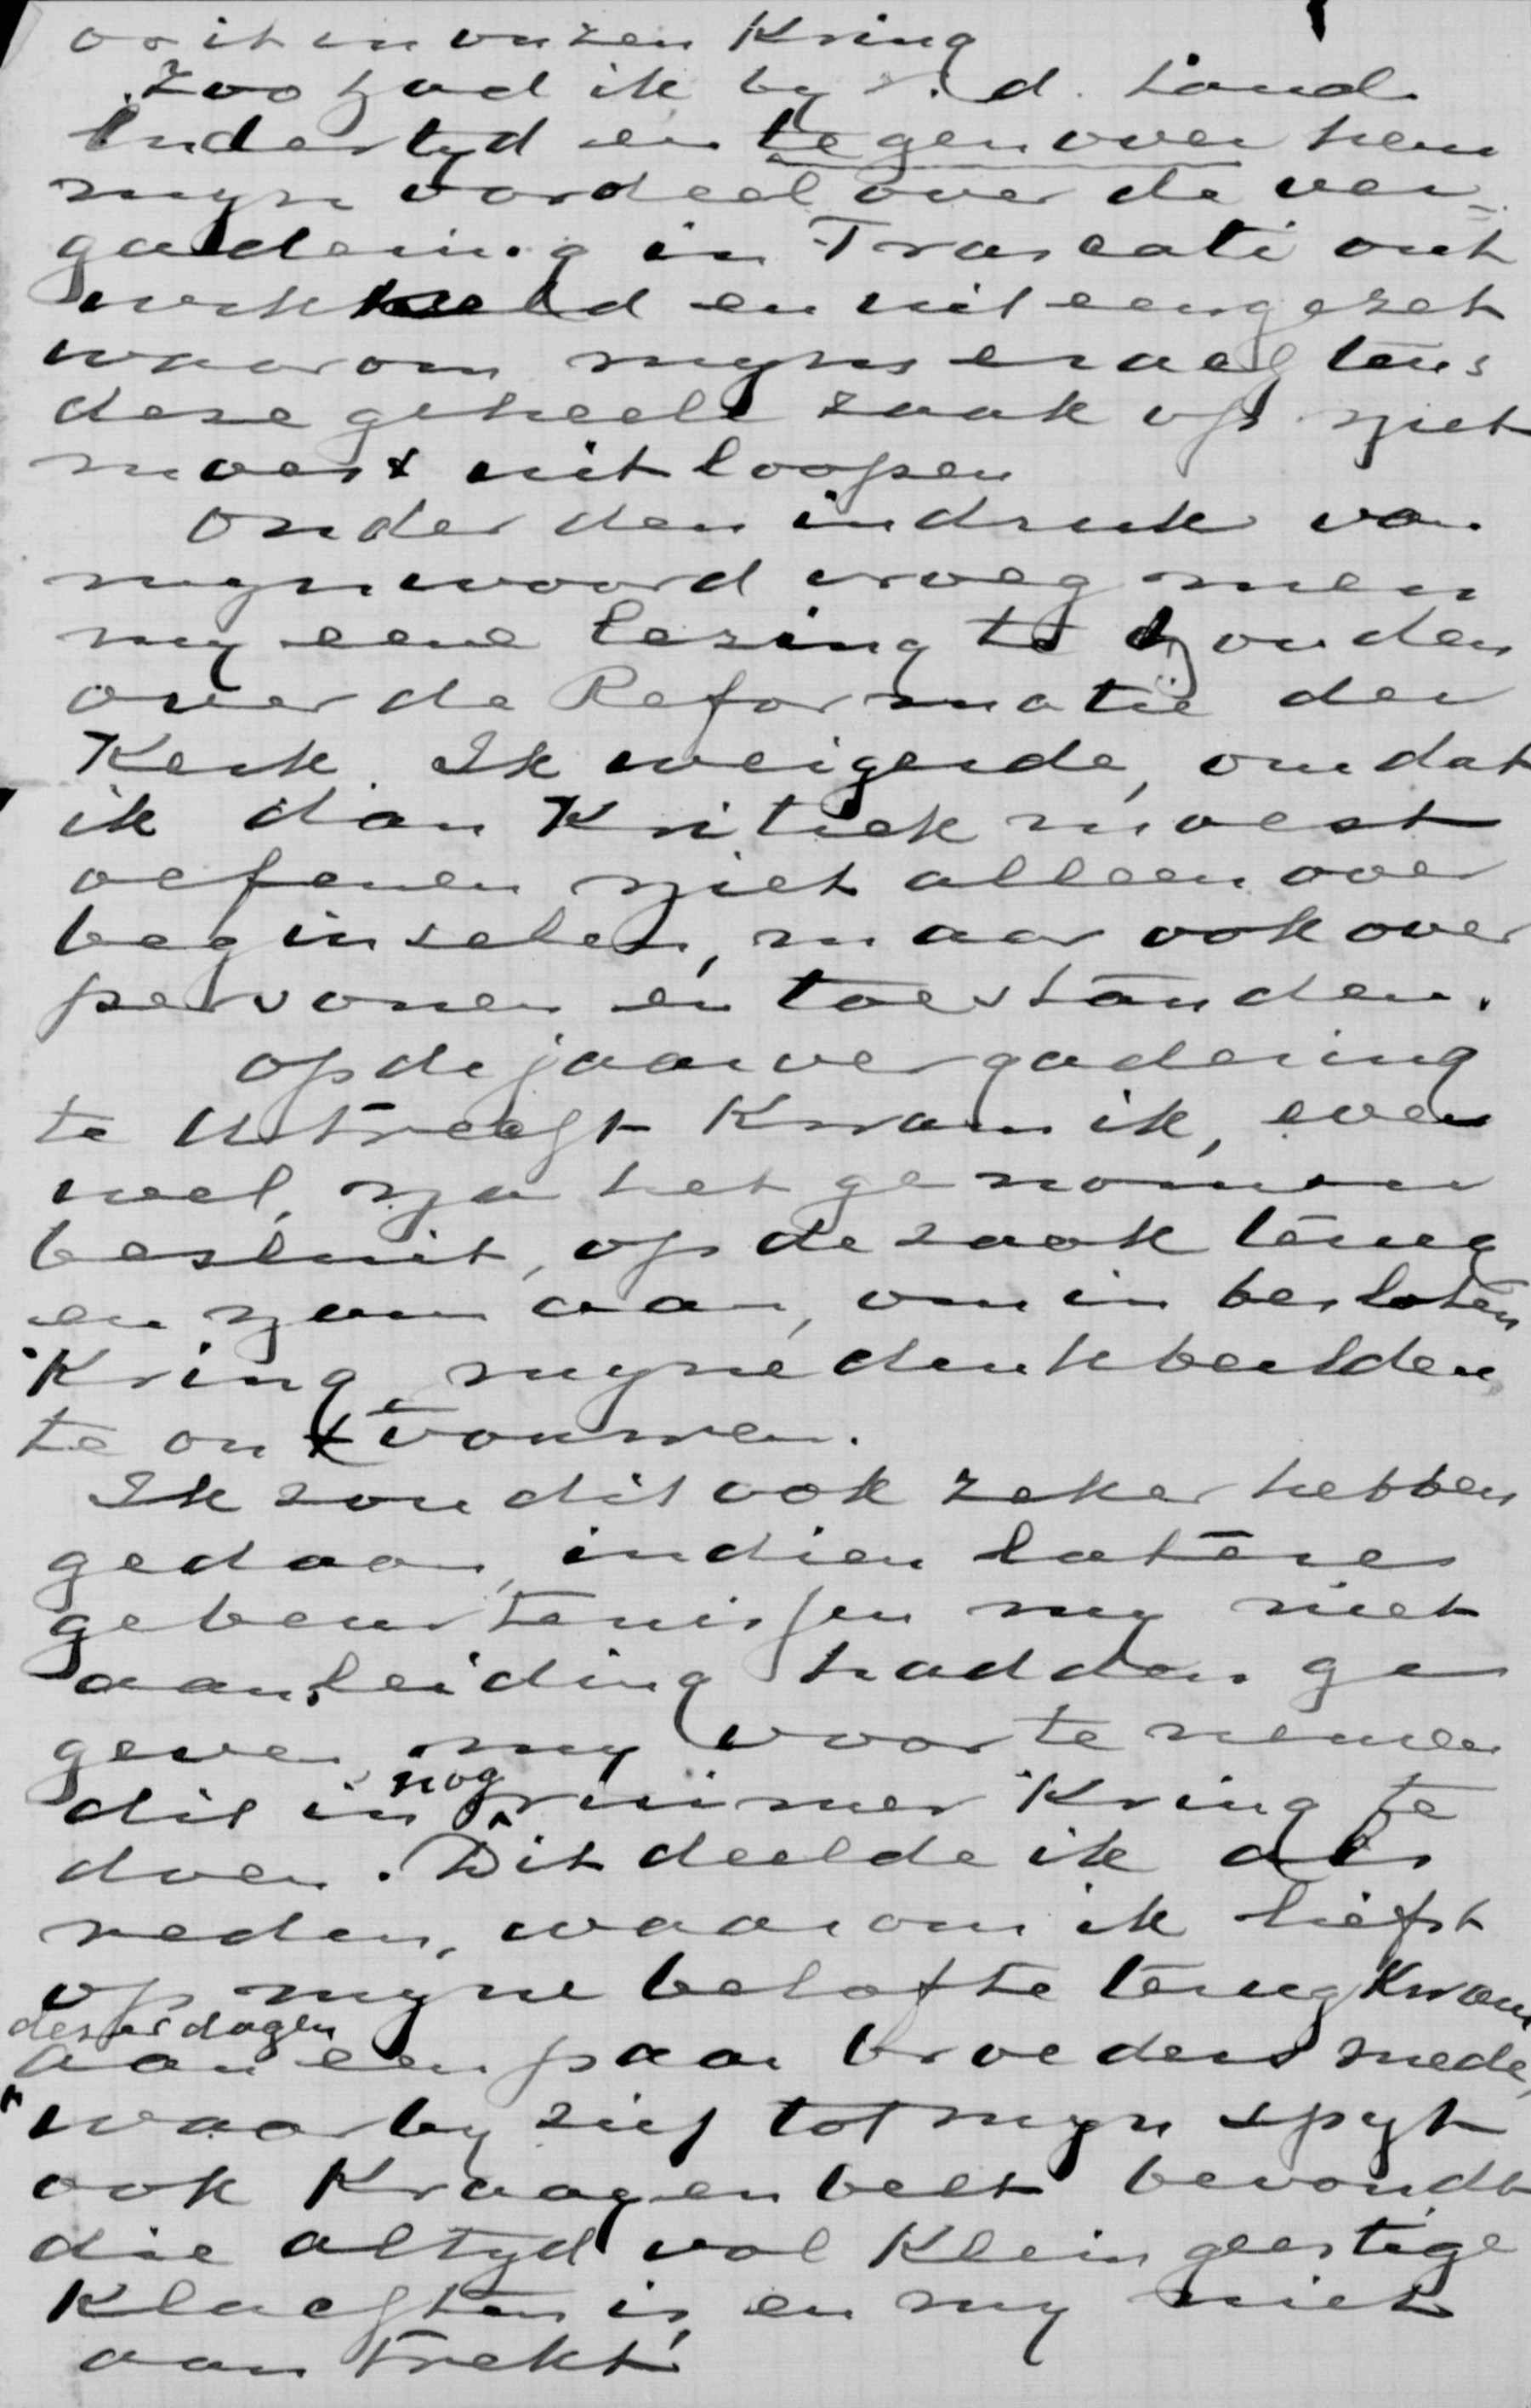 ooit in onzen Kring
Zoo had ik by v. d. Land
Indertyd en tegenover hem
myn oordeel over de ver=
gadering in Frascati ont
wikkeld en uiteengezet
waarom myns erachtens
deze geheele zaak op niet
moest uitloopen
Onder den indruk van
myn woord vroeg men
my eene lezing te houden
over de Reformatie der
Kerk. Ik weigerde, omdat
ik dan Kritiek moest
oefenen niet alleen over
beginselen, maar ook over
personen en toestanden.
Op de jaarvergadering
te Utrecht Kwam ik, even
wel, na het genomen
besluit, op de zaak terug
en nam aan, om in besloten
Kring myne denkbeelden
te ontvouwen.
Ik zou dit ook zeker hebben
gedaan, indien latere
gebeurtenissen my niet
aanleiding hadden ge
geven my voor te nemen
dit in nog ruimer Kring te
doen. Dit deelde ik als
reden, waarom ik liefst
op myne belofte terugkwam
dezer dagen
aan een paar broeders mede,
waarby zich tot myn spyt
ook Kraagenbelt bevondt
die altyd vol Kleingeestige
Klachten is, en my niet
aantrekt